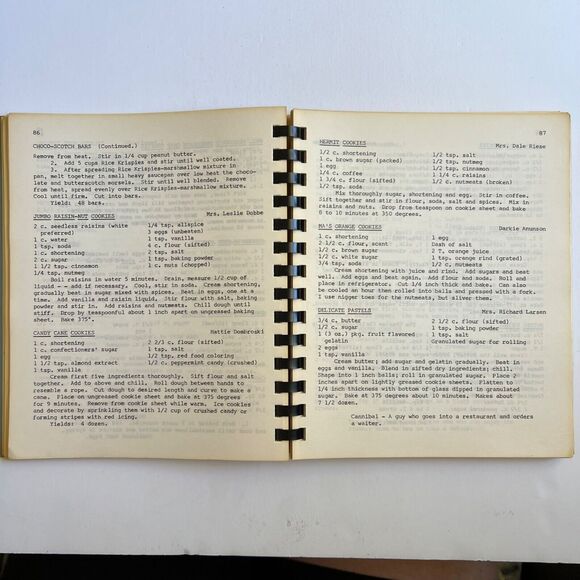 86
CHOCO-SCOTCH BARS (Continued.)
Remove from heat. Stir in 1/4 cup peanut butter.
2. Add 5 cups Rice Krispies and stir until well coated.
3. After spreading Rice Krispies-marshmallow mixture in
pan, melt together in small heavy saucepan over low heat the choco-
late and butterscotch morsels. Stir until well blended. Remove
from heat, spread evenly over Rice Krispies-marshmallow mixture.
Cool until firm. Cut into bars.
Yields: 48 bars.
JUMBO RAISIN-NUT COOKIES Mrs. Leslie Dobbe
2 c. seedless raisins (white 1/4 tsp. allspice
preferred) 3 eggs (unbeaten)
1 c. water 1 tsp. vanilla
1 tsp. soda 4 c. flour (sifted)
1 c. shortening 2 tsp. salt
2 c. sugar 1 tsp. baking powder
1 1/2 tsp. cinnamon 1 c. nuts (chopped)
1/4 tsp. nutmeg
Boil raisins in water 5 minutes. Drain, measure 1/2 cup of
liquid - - add if necessary. Cool, stir in soda. Cream shortening,
gradually beat in sugar mixed with spices. Beat in eggs, one at a
time. Add vanilla and raisin liquid. Stir flour with salt, baking
powder and stir in. Add raisins and nuts. Chill dough until
stiff. Drop by teaspoonful about 1 inch apart on ungreased baking
sheet. Bake 375°.
CANDY CANE COOKIES Hattie Dombroski
1 c. shortening 2 2/3 c. flour (sifted)
1 c. confectioners' sugar 1 tsp. salt
1 egg 1/2 tsp. red food coloring
1 1/2 tsp. almond extract 1/2 c. peppermint candy (crushed)
1 tsp. vanilla
Cream first five ingredients thoroughly. Sift flour and salt
together. Add to above and chill. Roll dough between hands to
resemble a rope. Cut dough to desired length and curve to make a
cane. Place on ungreased cookie sheet and bake at 375 degrees
for 9 minutes. Remove from cookie sheet while warm. Ice cookies
and decorate by sprinkling them with 1/2 cup of crushed candy or
forming stripes with red icing.
Yields: 4 dozen.
87
HERMIT COOKIES Mrs. Dale Riese
1/2 c. shortening 1/2 tsp. salt
1 c. brown sugar (packed) 1/2 tsp. nutmeg
1 egg 1/2 tsp. cinnamon
1/4 c. coffee 1/2 c. raisins
1 3/4 c. flour (sifted) 1/2 c. nutmeats (broken)
1/2 tsp. soda
Mix thoroughly sugar, shortening and egg. Stir in coffee.
Sift together and stir in flour, soda, salt and spices. Mix in
raisins and nuts. Drop from teaspoon on cookie sheet and bake
8 to 10 minutes at 350 degrees.
MA'S ORANGE COOKIES Darkie Amunson
1 c. shortening 1 egg
2 1/2 c. flour, scant Dash of salt
1/2 c. brown sugar 2 T. orange juice
1/2 c. white sugar 1 tsp. orange rind (grated)
3/4 tsp. soda 1/2 c. nutmeats
Cream shortening with juice and rind. Add sugars and beat
well. Add eggs and beat again. Add flour and soda. Roll and
place in refrigerator. Cut 1/4 inch thick and bake. Can also
be cooled an hour then rolled into balls and pressed with a fork.
I use nigger toes for the nutmeats, but sliver them.
DELICATE PASTELS Mrs. Richard Larsen
3/4 c. butter 2 1/2 c. flour (sifted)
1/2 c. sugar 1 tsp. baking powder
1 (3 oz.) pkg. fruit flavored 1 tsp. salt
gelatin Granulated sugar for rolling
2 eggs
1 tsp. vanilla
Cream butter; add sugar and gelatin gradually. Beat in
eggs and vanilla. Blend in sifted dry ingredients; chill.
Shape into 1 inch balls; roll in granulated sugar. Place 2
inches apart on lightly greased cookie sheets. Flatten to
1/4 inch thickness with bottom of glass dipped in granulated
sugar. Bake at 375 degrees about 10 minutes. Makes about
7 1/2 dozen.
Cannibal - A guy who goes into a restaurant and orders
a waiter.